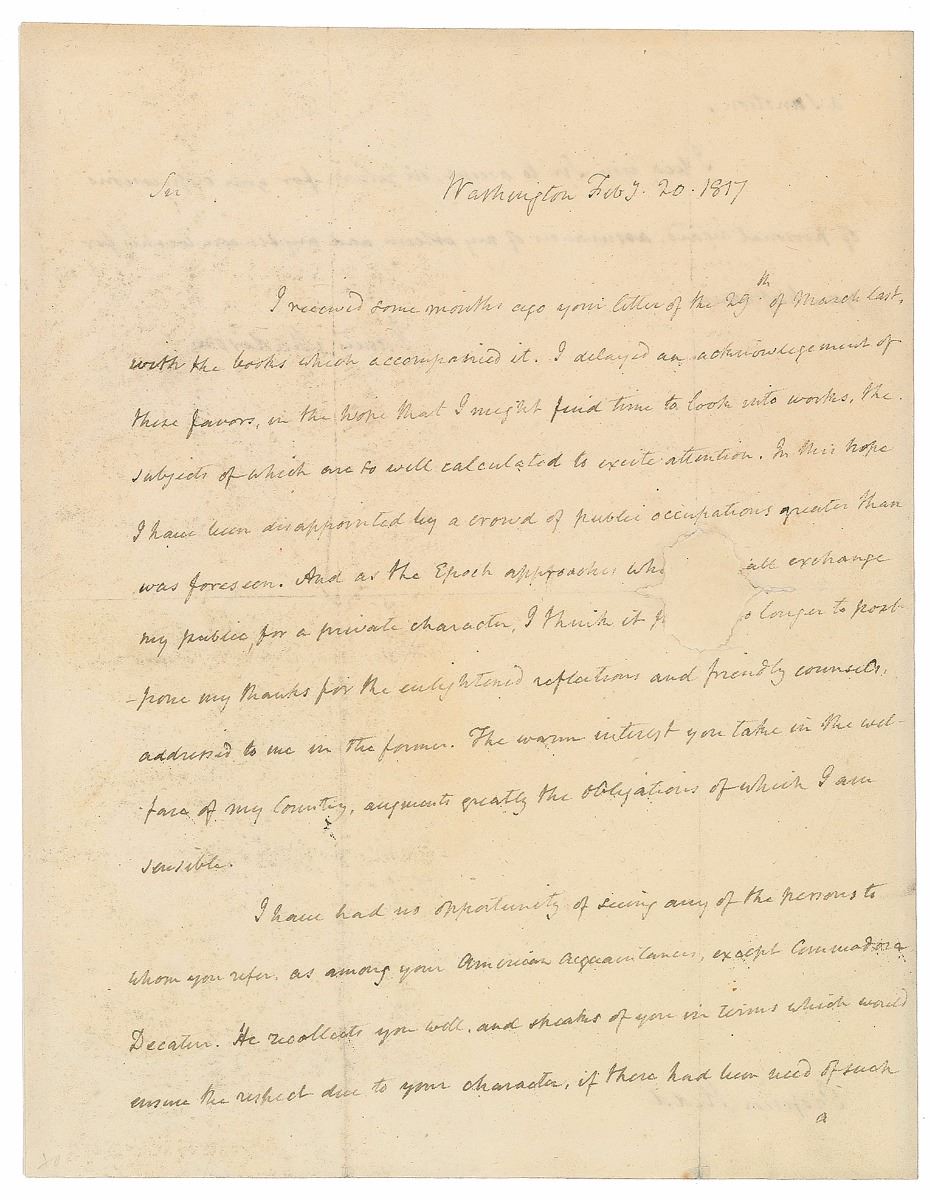 Sir
Washington Feby. 20. 1817
I received some months ago your letter of the 29.th of March last,
with the books which accompanied it. I delayed an acknowlegement of
these favors, in the hope that I might find time to look into works, the
subjects of which are so well calculated to excite attention. In this hope
I have been disappointed by a crowd of public occupations greater than
was foreseen. And as the Epoch approaches whe all exchange
my public, for a private character, I think it o longer to post-
-pone my thanks for the enlightened reflections and friendly counsels,
addressed to me in the former. The warm interest you take in the wel-
-fare of my Country, augments greatly the obligations of which I am
sensible.
I have had no opportunity of seeing any of the persons to
whom you refer, as among your American Acquaintances, except Commodore
Decatur. He recollects you well, and speaks of you in terms which would
ensure the respect due to your character, if there had been need of such
a